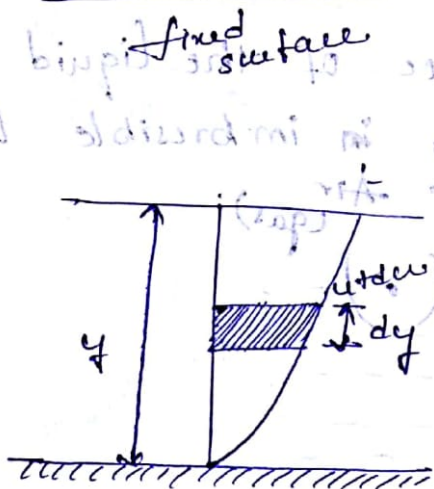 fixed
surface
u+du
dy
y